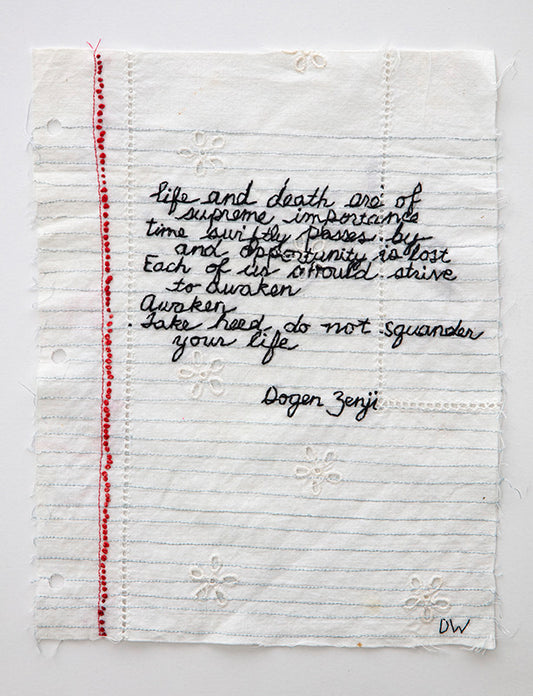 life and death are of
supreme importance
time swiftly passes by
and opportunity is lost
Each of us should strive
to awaken
Awaken
Take heed, do not squander
your life
Dogen Zenji
DW